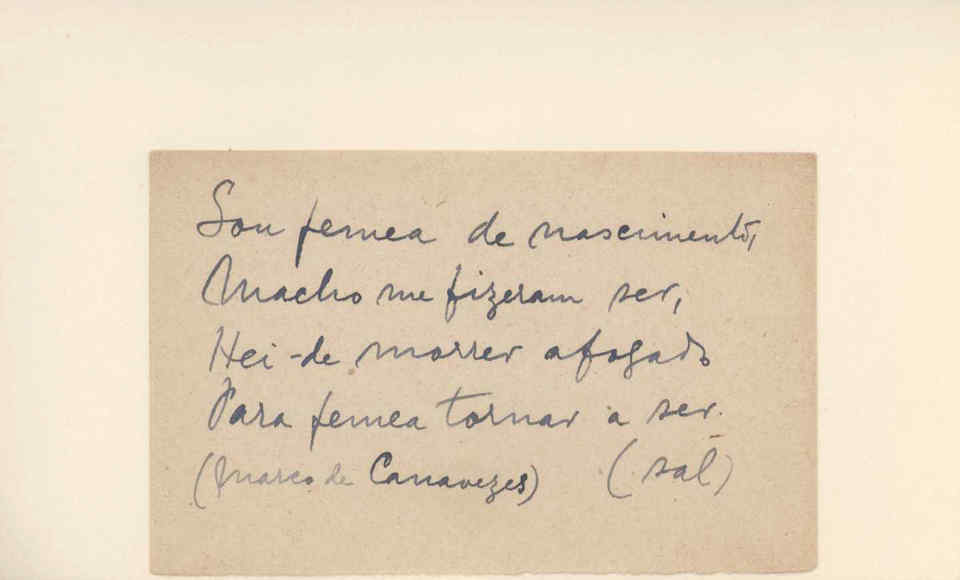 Sou femea de nascimento,
Macho me fizeram ser,
Hei-de morrer afogado
Para femea tornar a ser.
(Marco de Canavezes) (sal)